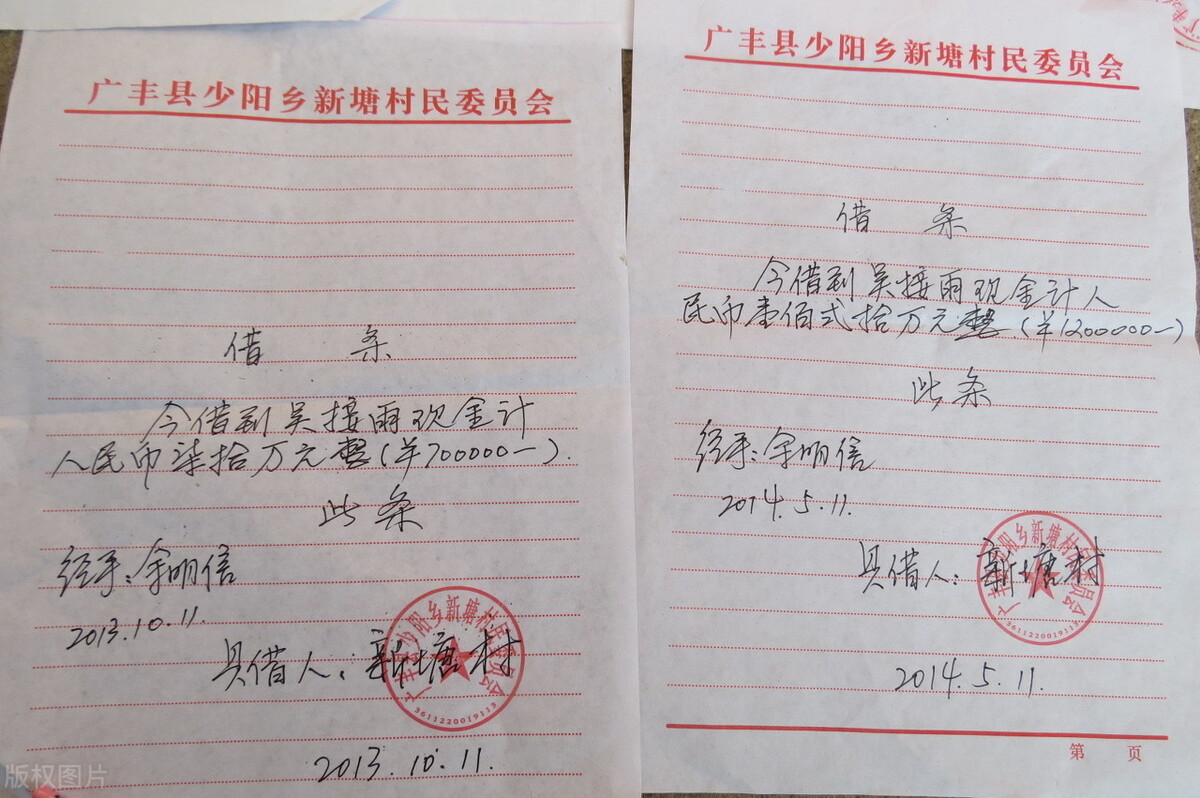 广丰县少阳乡新塘村民委员会
借 条
今借到吴接雨现金计
人民币柒拾万元整(羊700000—).
此条
经手:余明信
2013.10.11.
具借人:新塘村
广丰县少阳乡新塘村民委员会
3611220019113
2013.10.11.
版权图片
广丰县少阳乡新塘村民委员会
借 条
今借到吴接雨现金计人
民币壹佰式拾万元整(羊1200000—)
此条
经手:余明信
2014.5.11.
具借人:新塘村
广丰县少阳乡新塘村民委员会
3611220019113
2014.5.11.
第 页